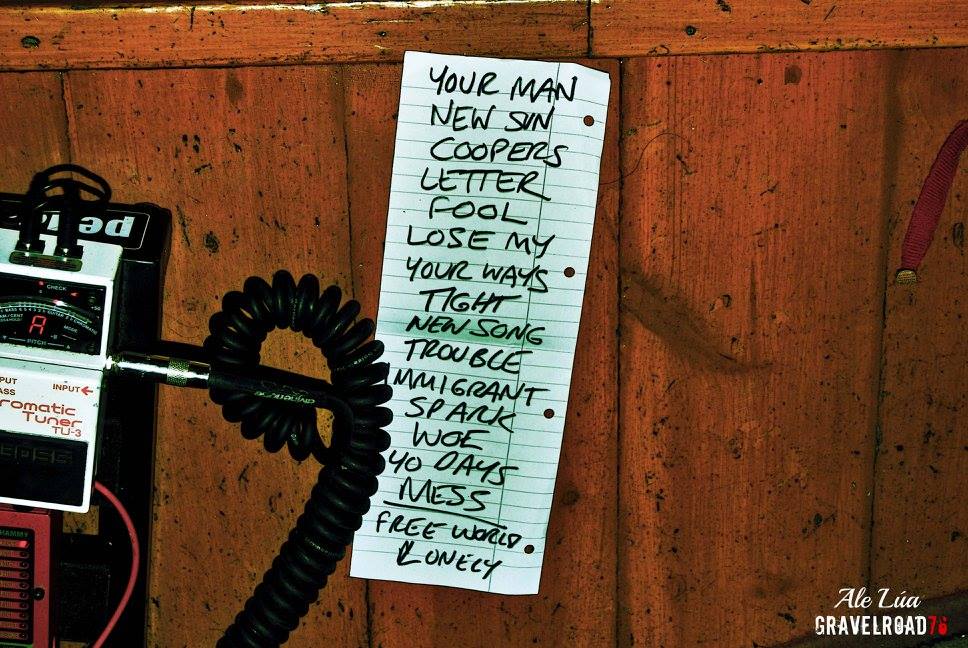 YOUR MAN
NEW SUN
COOPERS
LETTER
FOOL
LOSE MY
YOUR WAYS
TIGHT
NEW SONG
TROUBLE
MMIGRANT
SPARK
WOE
40 DAYS
MESS
FREE WORLD
LONELY
CHECK
MODE
PITCH
A
PUT
ASS
INPUT←
romatic
Tuner
TU-3
HAMMY
Ale Lúa
GRAVELROAD76